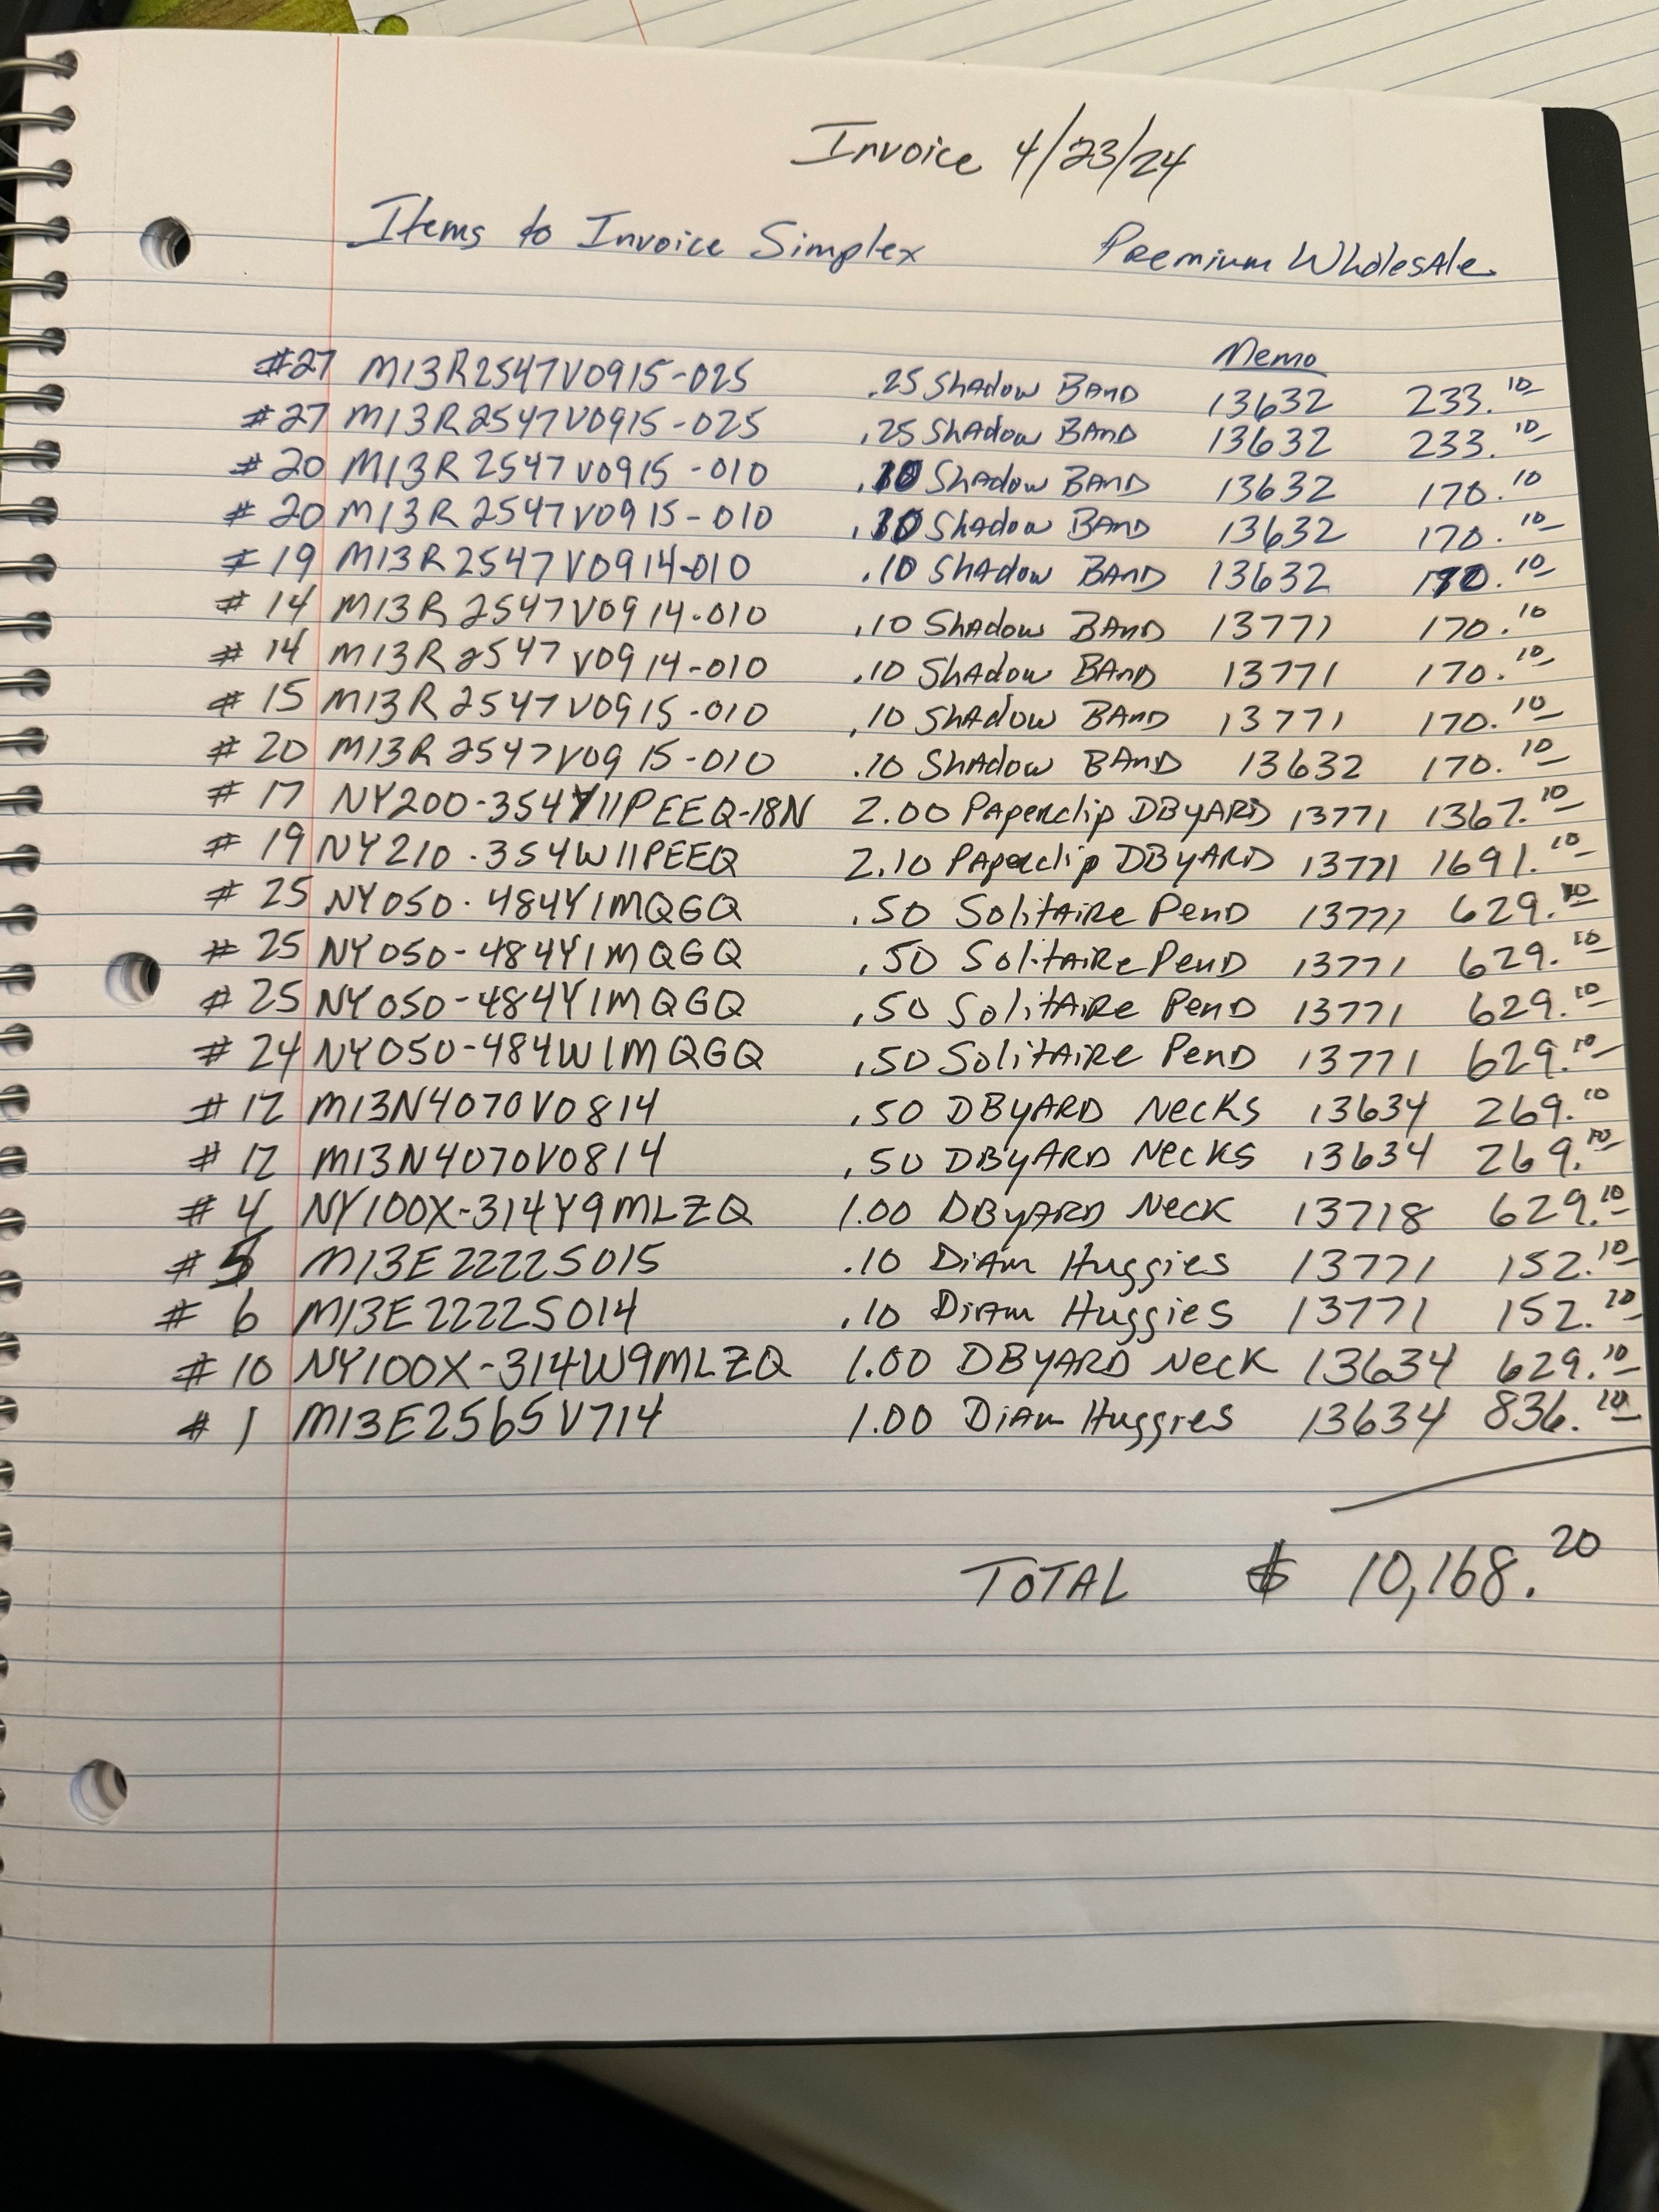 Invoice 4/23/24
Items to Invoice Simplex Premium Wholesale
Memo
#27 M13R2547V0915-025 .25 Shadow Band 13632 233.10
#27 M13R2547V0915-025 .25 Shadow Band 13632 233.10
#20 M13R2547V0915-010 .10 Shadow Band 13632 170.10
#20 M13R2547V0915-010 .10 Shadow Band 13632 170.10
#19 M13R2547V0914-010 .10 Shadow Band 13632 170.10
#14 M13R2547V0914-010 .10 Shadow Band 13771 170.10
#14 M13R2547V0914-010 .10 Shadow Band 13771 170.10
#15 M13R2547V0915-010 .10 Shadow Band 13771 170.10
#20 M13R2547V0915-010 .10 Shadow Band 13632 170.10
#17 NY200-354Y11PEEQ-18N 2.00 Paperclip DByARD 13771 1367.10
#19 NY210-354W11PEEQ 2.10 Paperclip DByARD 13771 1691.10
#25 NY050-484Y1MQGQ .50 Solitaire Pend 13771 629.10
#25 NY050-484Y1MQGQ .50 Solitaire Pend 13771 629.10
#25 NY050-484Y1MQGQ .50 Solitaire Pend 13771 629.10
#24 NY050-484W1MQGQ .50 Solitaire Pend 13771 629.10
#12 M13N4070V0814 .50 DByARD Necks 13634 269.10
#12 M13N4070V0814 .50 DByARD Necks 13634 269.10
#4 NY100X-314Y9MLZQ 1.00 DByARD Neck 13718 629.10
#5 M13E2222S015 .10 Diam Huggies 13771 152.10
#6 M13E2222S014 .10 Diam Huggies 13771 152.10
#10 NY100X-314W9MLZQ 1.00 DByARD Neck 13634 629.10
#1 M13E2565V714 1.00 Diam Huggies 13634 836.10
TOTAL $ 10,168.20